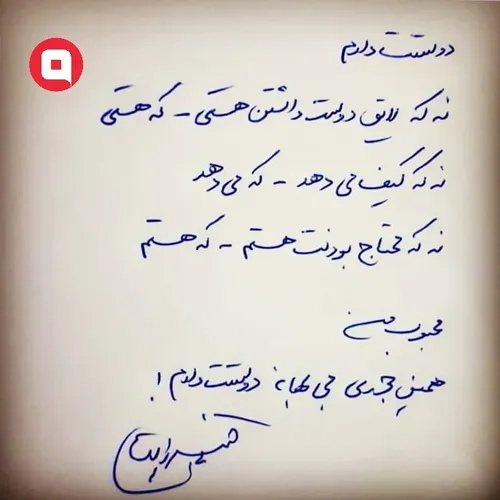 دوستت دارم
نه که لایق دوست داشتن هستی - که هستی
نه که کیف می دهد - که می دهد
نه که محتاج بودنت هستم - که هستم
محبوب من
همینجوری بی بهانه دوستت دارم!